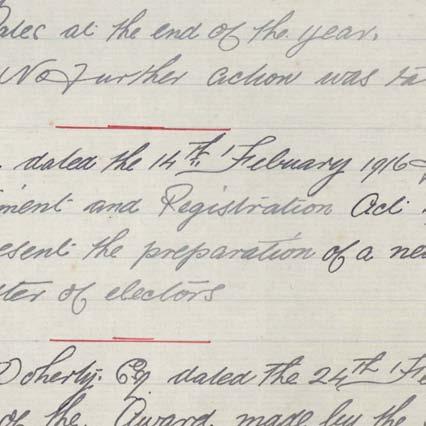 ates at the end of the year.
No Further action was ta
dated the 14th February 1916
ment and Registration Act
esent the preparation of a ne
ter of electors
Doherty. Esq dated the 24th Fe
of the Award made by the